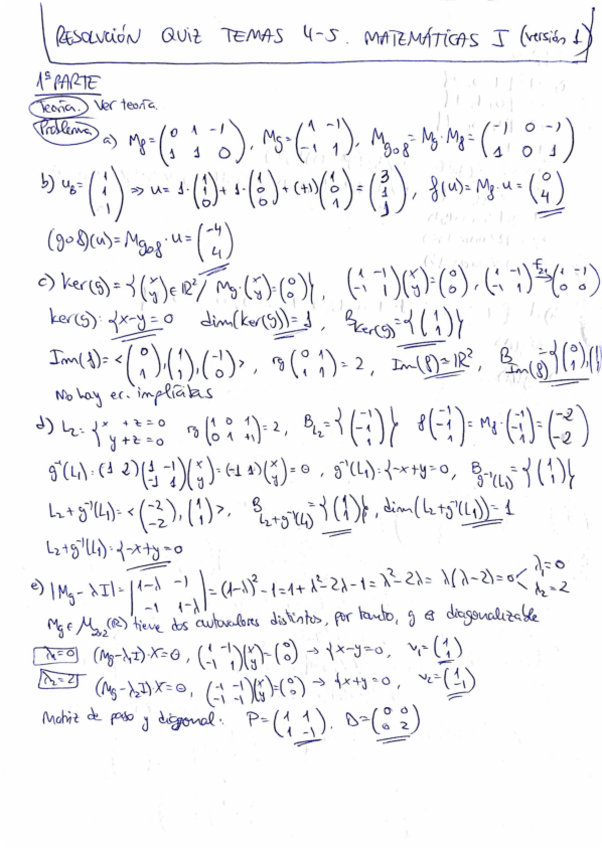 RESOLUCIÓN QUIZ TEMAS 4-5. MATEMÁTICAS I (versión 1)
1ª PARTE
Teoría. Ver teoría.
Problema a) Mf = (0 1 -1; 1 1 0), Mg = (1 -1; -1 1), Mgof = Mg · Mf = (-1 0 -1; 1 0 1)
b) uB = (1; 1; -1) ⇒ u = 1·(1; 1; 0) + 1·(1; 0; 0) + (+1)(1; 0; 1) = (3; 1; 1), f(u) = Mf · u = (0; 4)
(gof)(u) = Mgof · u = (-4; 4)
c) ker(g) = {(x; y) ∈ ℝ² / Mg·(x; y) = (0; 0)}, (1 -1; -1 1)(x; y) = (0; 0), (1 -1; -1 1) →F21 (1 -1; 0 0)
ker(g): {x-y=0 dim(ker(g)) = 1, Bker(g) = {(1; 1)}
Im(f) = <(0; 1), (1; 1), (-1; 0)>, rg(0 1; 1 1) = 2, Im(f) = ℝ², BIm(f) = {(0; 1), (
No hay ec. implícitas
d) L2 = {x + z = 0; y + z = 0 rg(1 0 1; 0 1 +1) = 2, BL2 = {(-1; -1; 1)} f(-1; -1; 1) = Mf·(-1; -1; 1) = (-2; -2)
g⁻¹(L1): (1 2)(1 -1; -1 1)(x; y) = (-1 1)(x; y) = 0, g⁻¹(L1): {-x+y=0, Bg⁻¹(L1) = {(1; 1)}
L2 + g⁻¹(L1) = <(-2; -2), (1; 1)>, BL2+g⁻¹(L1) = {(1; 1)}, dim(L2+g⁻¹(L1)) = 1
L2 + g⁻¹(L1) = {-x+y=0
e) |Mg - λI| = |1-λ -1; -1 1-λ| = (1-λ)² - 1 = 1+λ²-2λ-1 = λ²-2λ = λ(λ-2) = 0 < λ1=0; λ2=2
Mg ∈ M2x2(ℝ) tiene dos autovalores distintos, por tanto, g es diagonalizable
λ1=0 (Mg-λ1I)·X=0, (1 -1; -1 1)(x; y) = (0; 0) → {x-y=0, v1 = (1; 1)
λ2=2 (Mg-λ2I)·X=0, (-1 -1; -1 -1)(x; y) = (0; 0) → {x+y=0, v2 = (1; -1)
Matriz de paso y diagonal: P = (1 1; 1 -1). D = (0 0; 0 2)